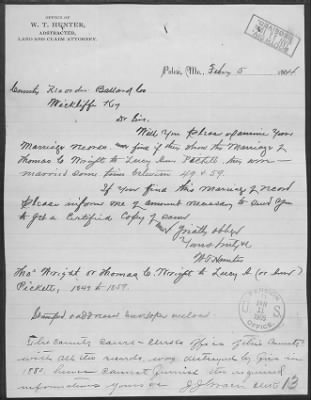 OFFICE OF
W. T. HUNTER,
ABSTRACTER,
LAND AND CLAIM ATTORNEY.
Mo., Feby 5
County Recorder Ballard Co
Wickliffe Ky
Dr Sir.
Will you please examine your
Marriage records and find if they show the Marriage of
Thomas C. Wright to Lucy Ann they were
married some time between 49 & 59.
If you find this marriage of record
please inform me of amount necessary to send you
to get a Certified Copy of same
and greatly oblige
Yours truly
W T Hunter
Thos Wright or Thomas C. Wright to Lucy A (or Ann)
Pickett, 1849 to 1859.
Stamped & addressed envelope enclosed
The county court clerks office of this County
with all the records, was destroyed by fire in
1880, hence cannot furnish the required
information yours &c J 13
PENSION
U S
OFFICE.
JAN